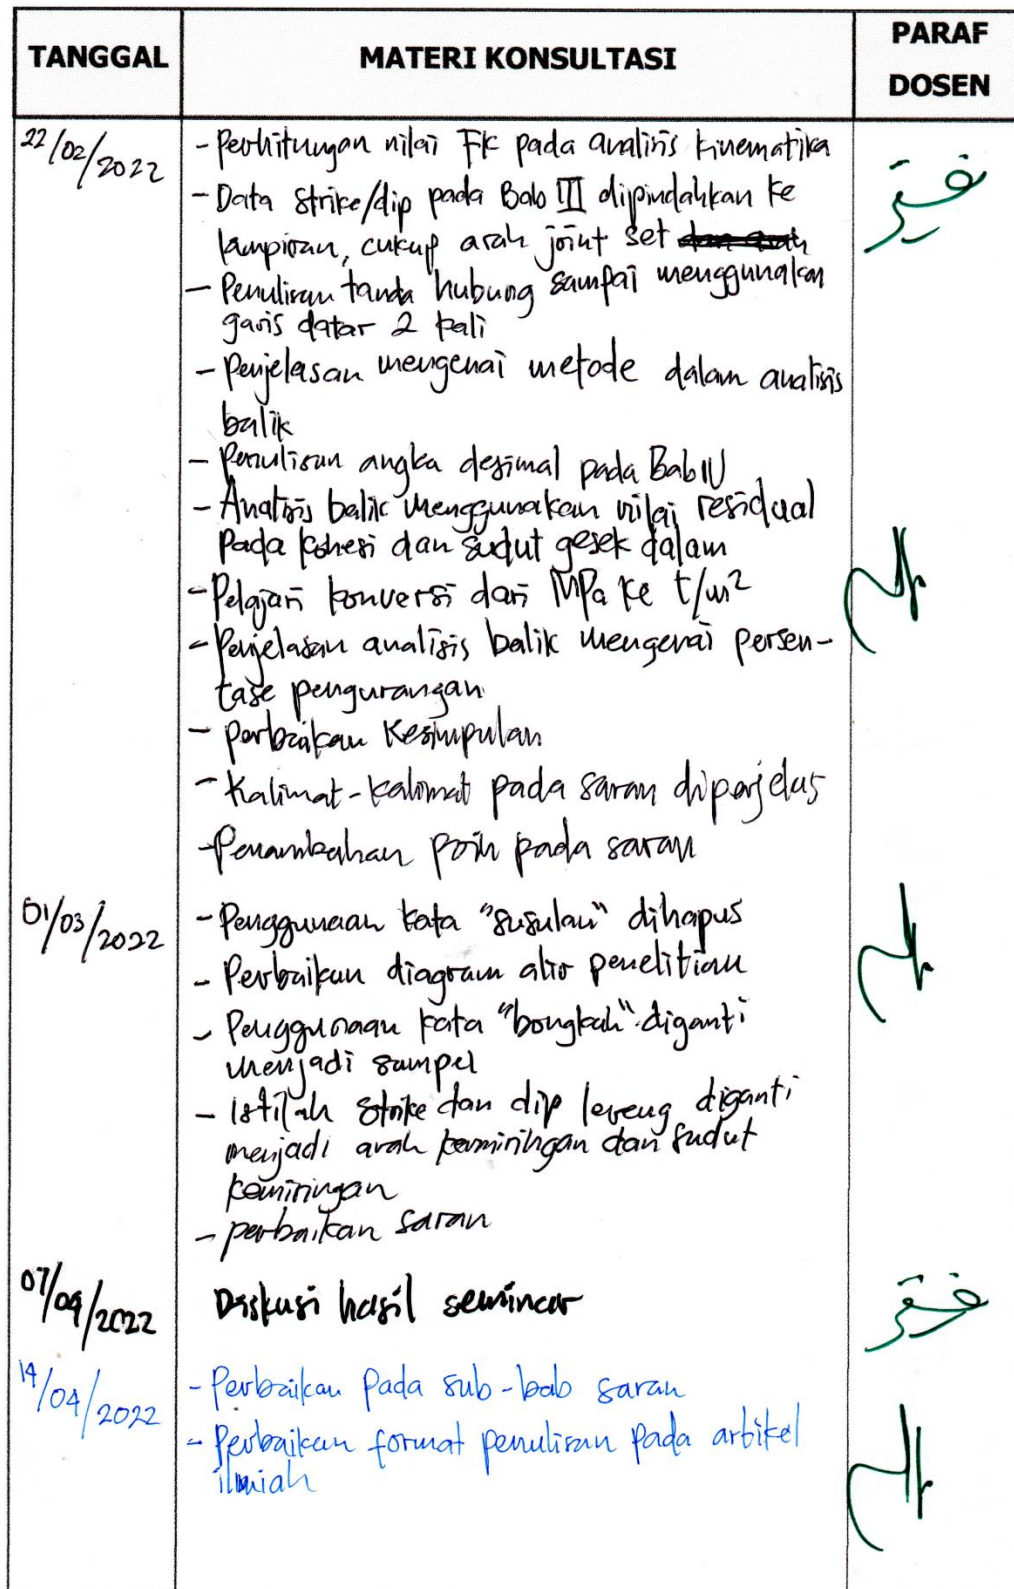 TANGGAL
MATERI KONSULTASI
PARAF
DOSEN
22/02/2022
- Perhitungan nilai FK pada analisis kinematika
- Data strike/dip pada Bab III dipindahkan ke
lampiran, cukup arah joint set
- Penulisan tanda hubung sampai menggunakan
garis datar 2 kali
- Penjelasan mengenai metode dalam analisis
balik
- Penulisan angka desimal pada Bab IV
- Analisis balik menggunakan nilai residual
pada kohesi dan sudut gesek dalam
- Pelajari konversi dari MPa ke t/m²
- Penjelasan analisis balik mengenai persen-
tase pengurangan
- Perbaikan Kesimpulan
- Kalimat-kalimat pada saran diperjelas
- Penambahan poin pada saran
01/03/2022
- Penggunaan kata "susulan" dihapus
- Perbaikan diagram alir penelitian
- Penggunaan kata "bongkah" diganti
menjadi sampel
- Istilah Strike dan dip lereng diganti
menjadi arah kemiringan dan sudut
kemiringan
- perbaikan saran
07/04/2022
Diskusi hasil seminar
14/04/2022
- Perbaikan pada sub-bab saran
- Perbaikan format penulisan pada artikel
ilmiah